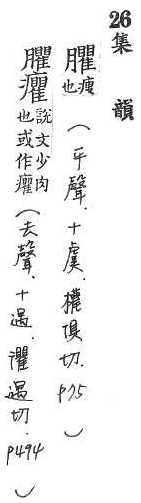 26集韻
臞瘦也（平聲．十虞．權俱切．P75）
臞癯說文少肉也或作癯（去聲．十遇．瞿遇切．P494）